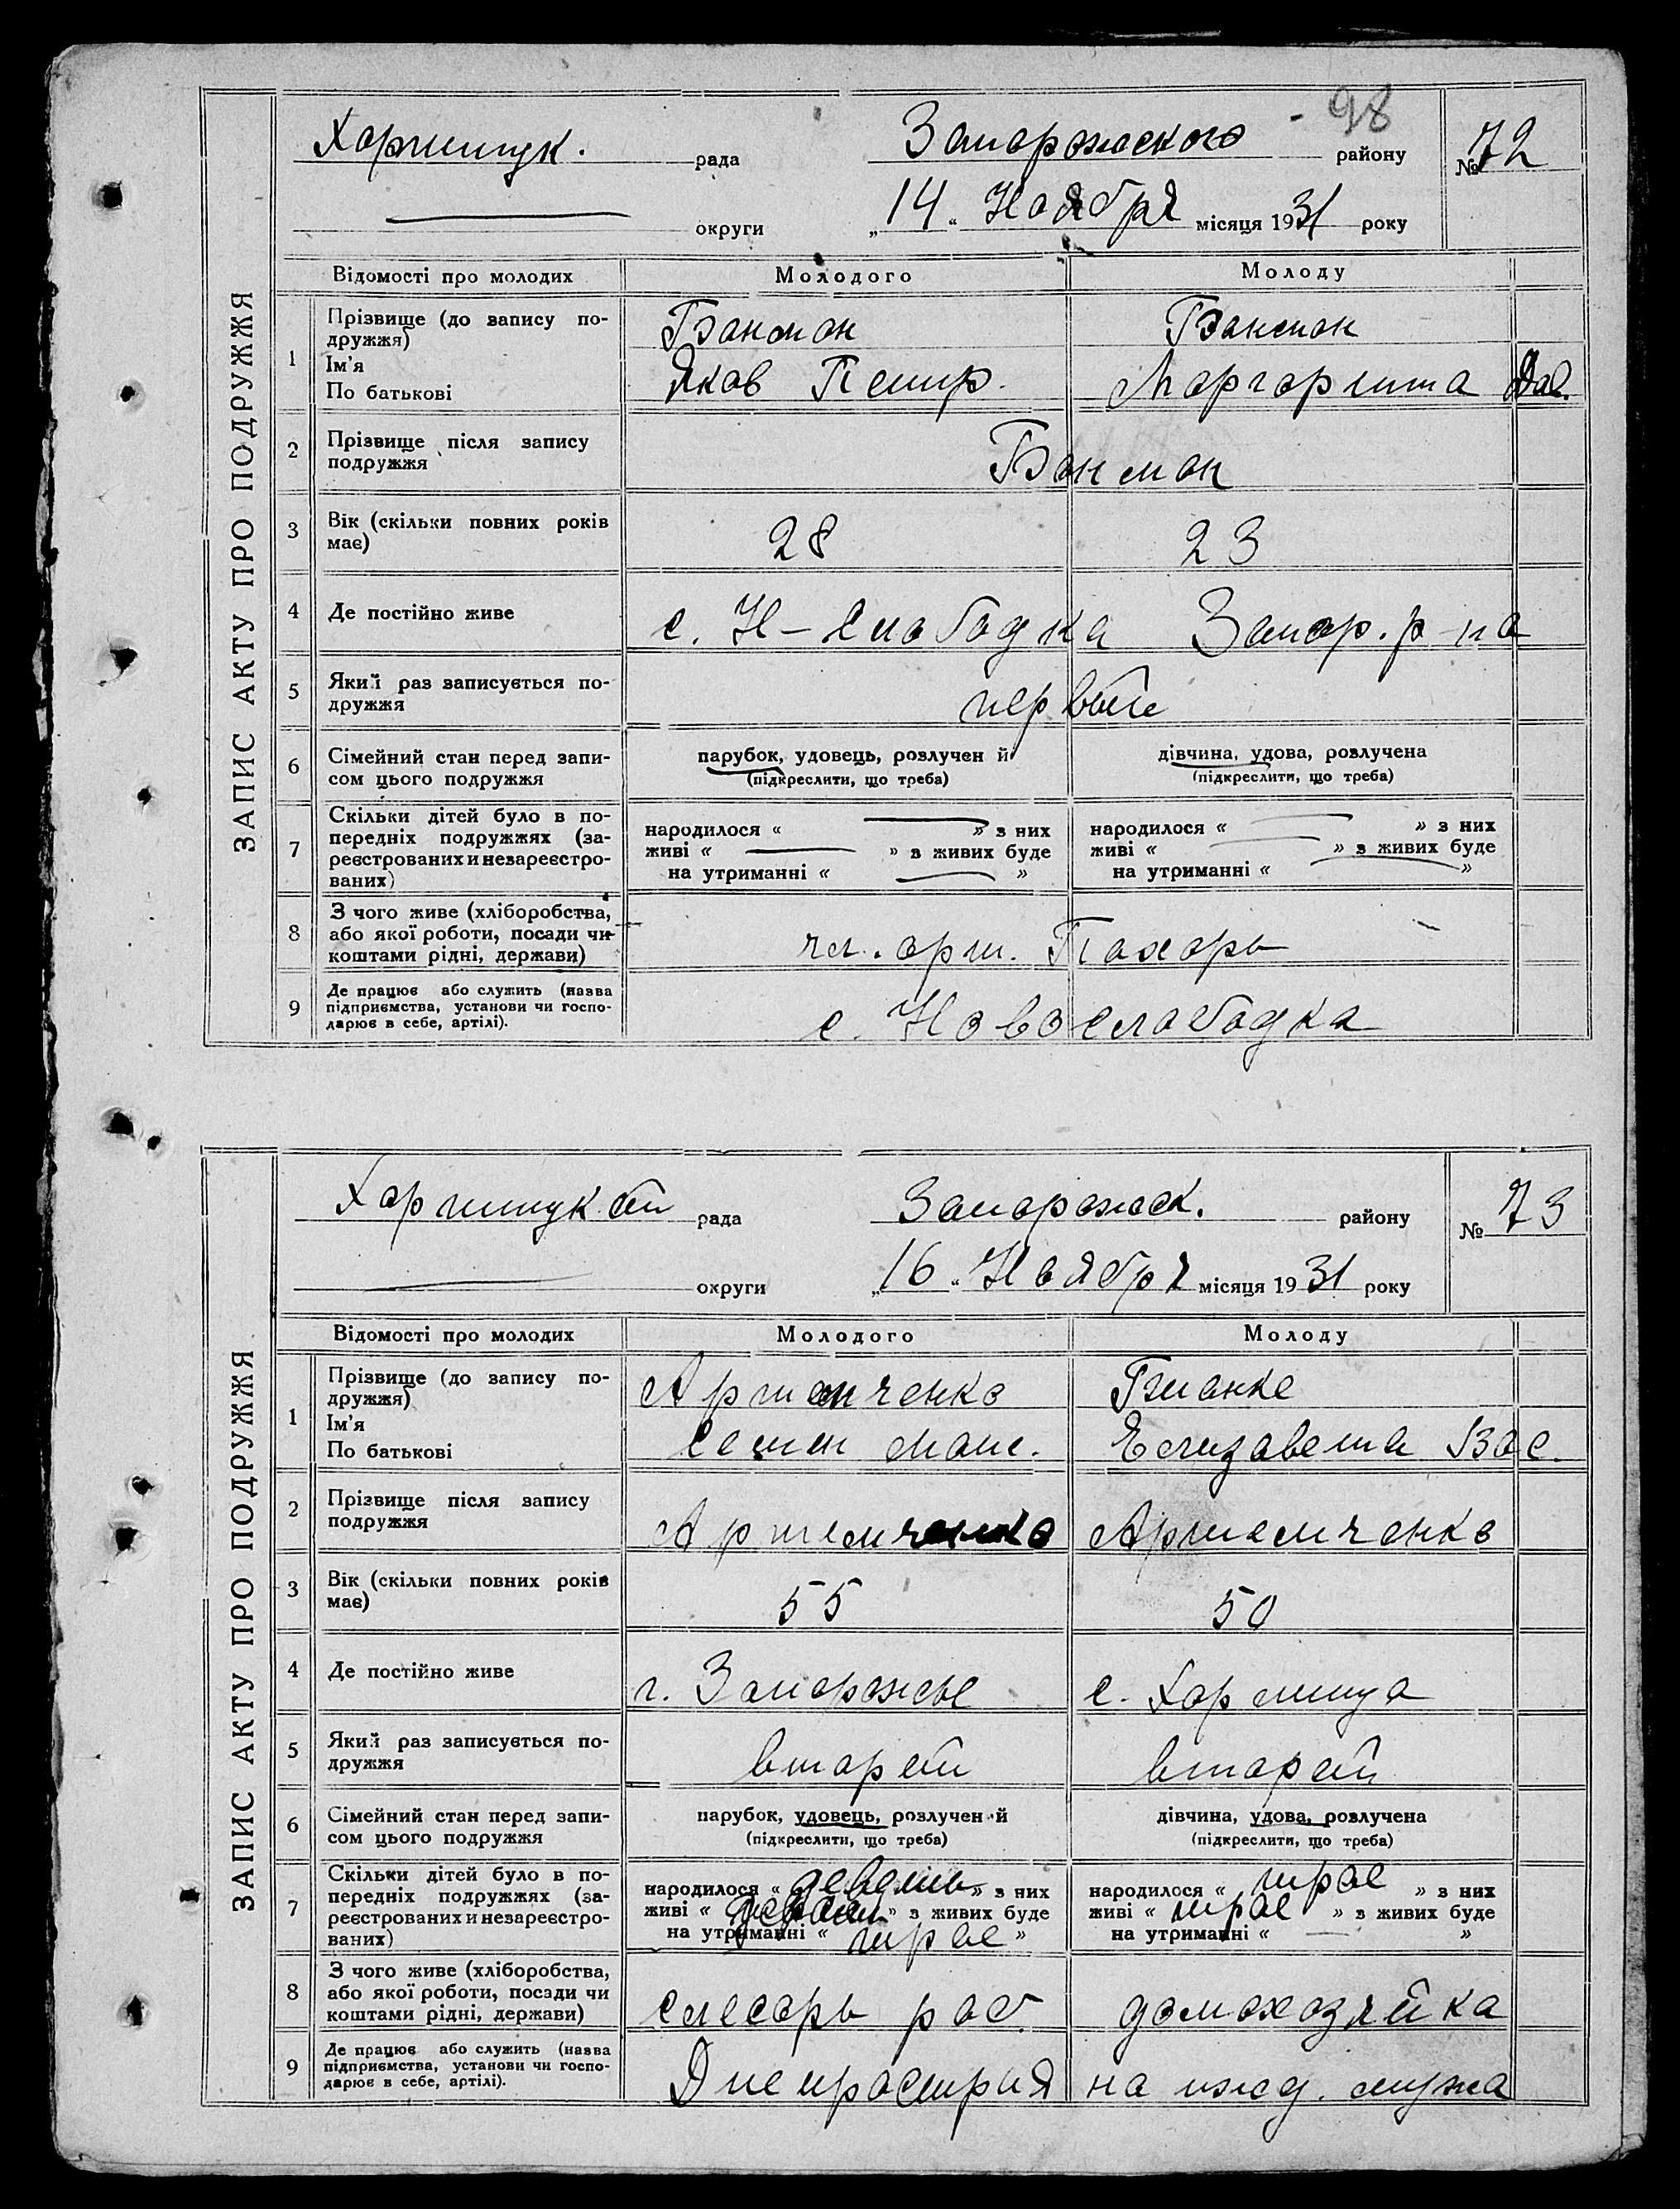 98
Хортицук. рада Запорожского району № 72
округи „14“ Ноября місяця 1931 року
ЗАПИС АКТУ ПРО ПОДРУЖЖЯ
Відомості про молодих Молодого Молоду
1 Прізвище (до запису по-
дружжя)
Ім'я
По батькові
Банман Банман
Яков Петр. Маргарита Дав.
2 Прізвище після запису
подружжя
Банман
3 Вік (скільки повних років
має)
28 23
4 Де постійно живе с. Н-Слободка Запор. р-на
5 Який раз записується по-
дружжя
первый
6 Сімейний стан перед запи-
сом цього подружжя
парубок, удовець, розлучен й
(підкреслити, що треба)
дівчина, удова, розлучена
(підкреслити, що треба)
7 Скільки дітей було в по-
передніх подружжях (за-
реєстрованих и незареєстро-
ваних)
народилося « — » з них
живі « — » з живих буде
на утриманні « — »
народилося « — » з них
живі « — » з живих буде
на утриманні « — »
8 З чого живе (хліборобства,
або якої роботи, посади чи
коштами рідні, держави)
чл. арт. Пахарь
9 Де працює або служить (назва
підприємства, установи чи госпо-
дарює в себе, артілі).
с. Новослободка
Хортицук.ой рада Запорожск. району № 73
округи „16“ Ноября місяця 1931 року
ЗАПИС АКТУ ПРО ПОДРУЖЖЯ
Відомості про молодих Молодого Молоду
1 Прізвище (до запису по-
дружжя)
Ім'я
По батькові
Артемченко
Елизавета Вас.
2 Прізвище після запису
подружжя
Артемченко Артемченко
3 Вік (скільки повних років
має)
55 50
4 Де постійно живе г. Запорожье с. Хортица
5 Який раз записується по-
дружжя
второй второй
6 Сімейний стан перед запи-
сом цього подружжя
парубок, удовець, розлучен й
(підкреслити, що треба)
дівчина, удова, розлучена
(підкреслити, що треба)
7 Скільки дітей було в по-
передніх подружжях (за-
реєстрованих и незареєстро-
ваних)
народилося « девять » з них
живі « » з живих буде
на утриманні « трое »
народилося « трое » з них
живі « трое » з живих буде
на утриманні « — »
8 З чого живе (хліборобства,
або якої роботи, посади чи
коштами рідні, держави)
слесарь раб. домохозяйка
9 Де працює або служить (назва
підприємства, установи чи госпо-
дарює в себе, артілі).
Днепрострой на ижд. мужа